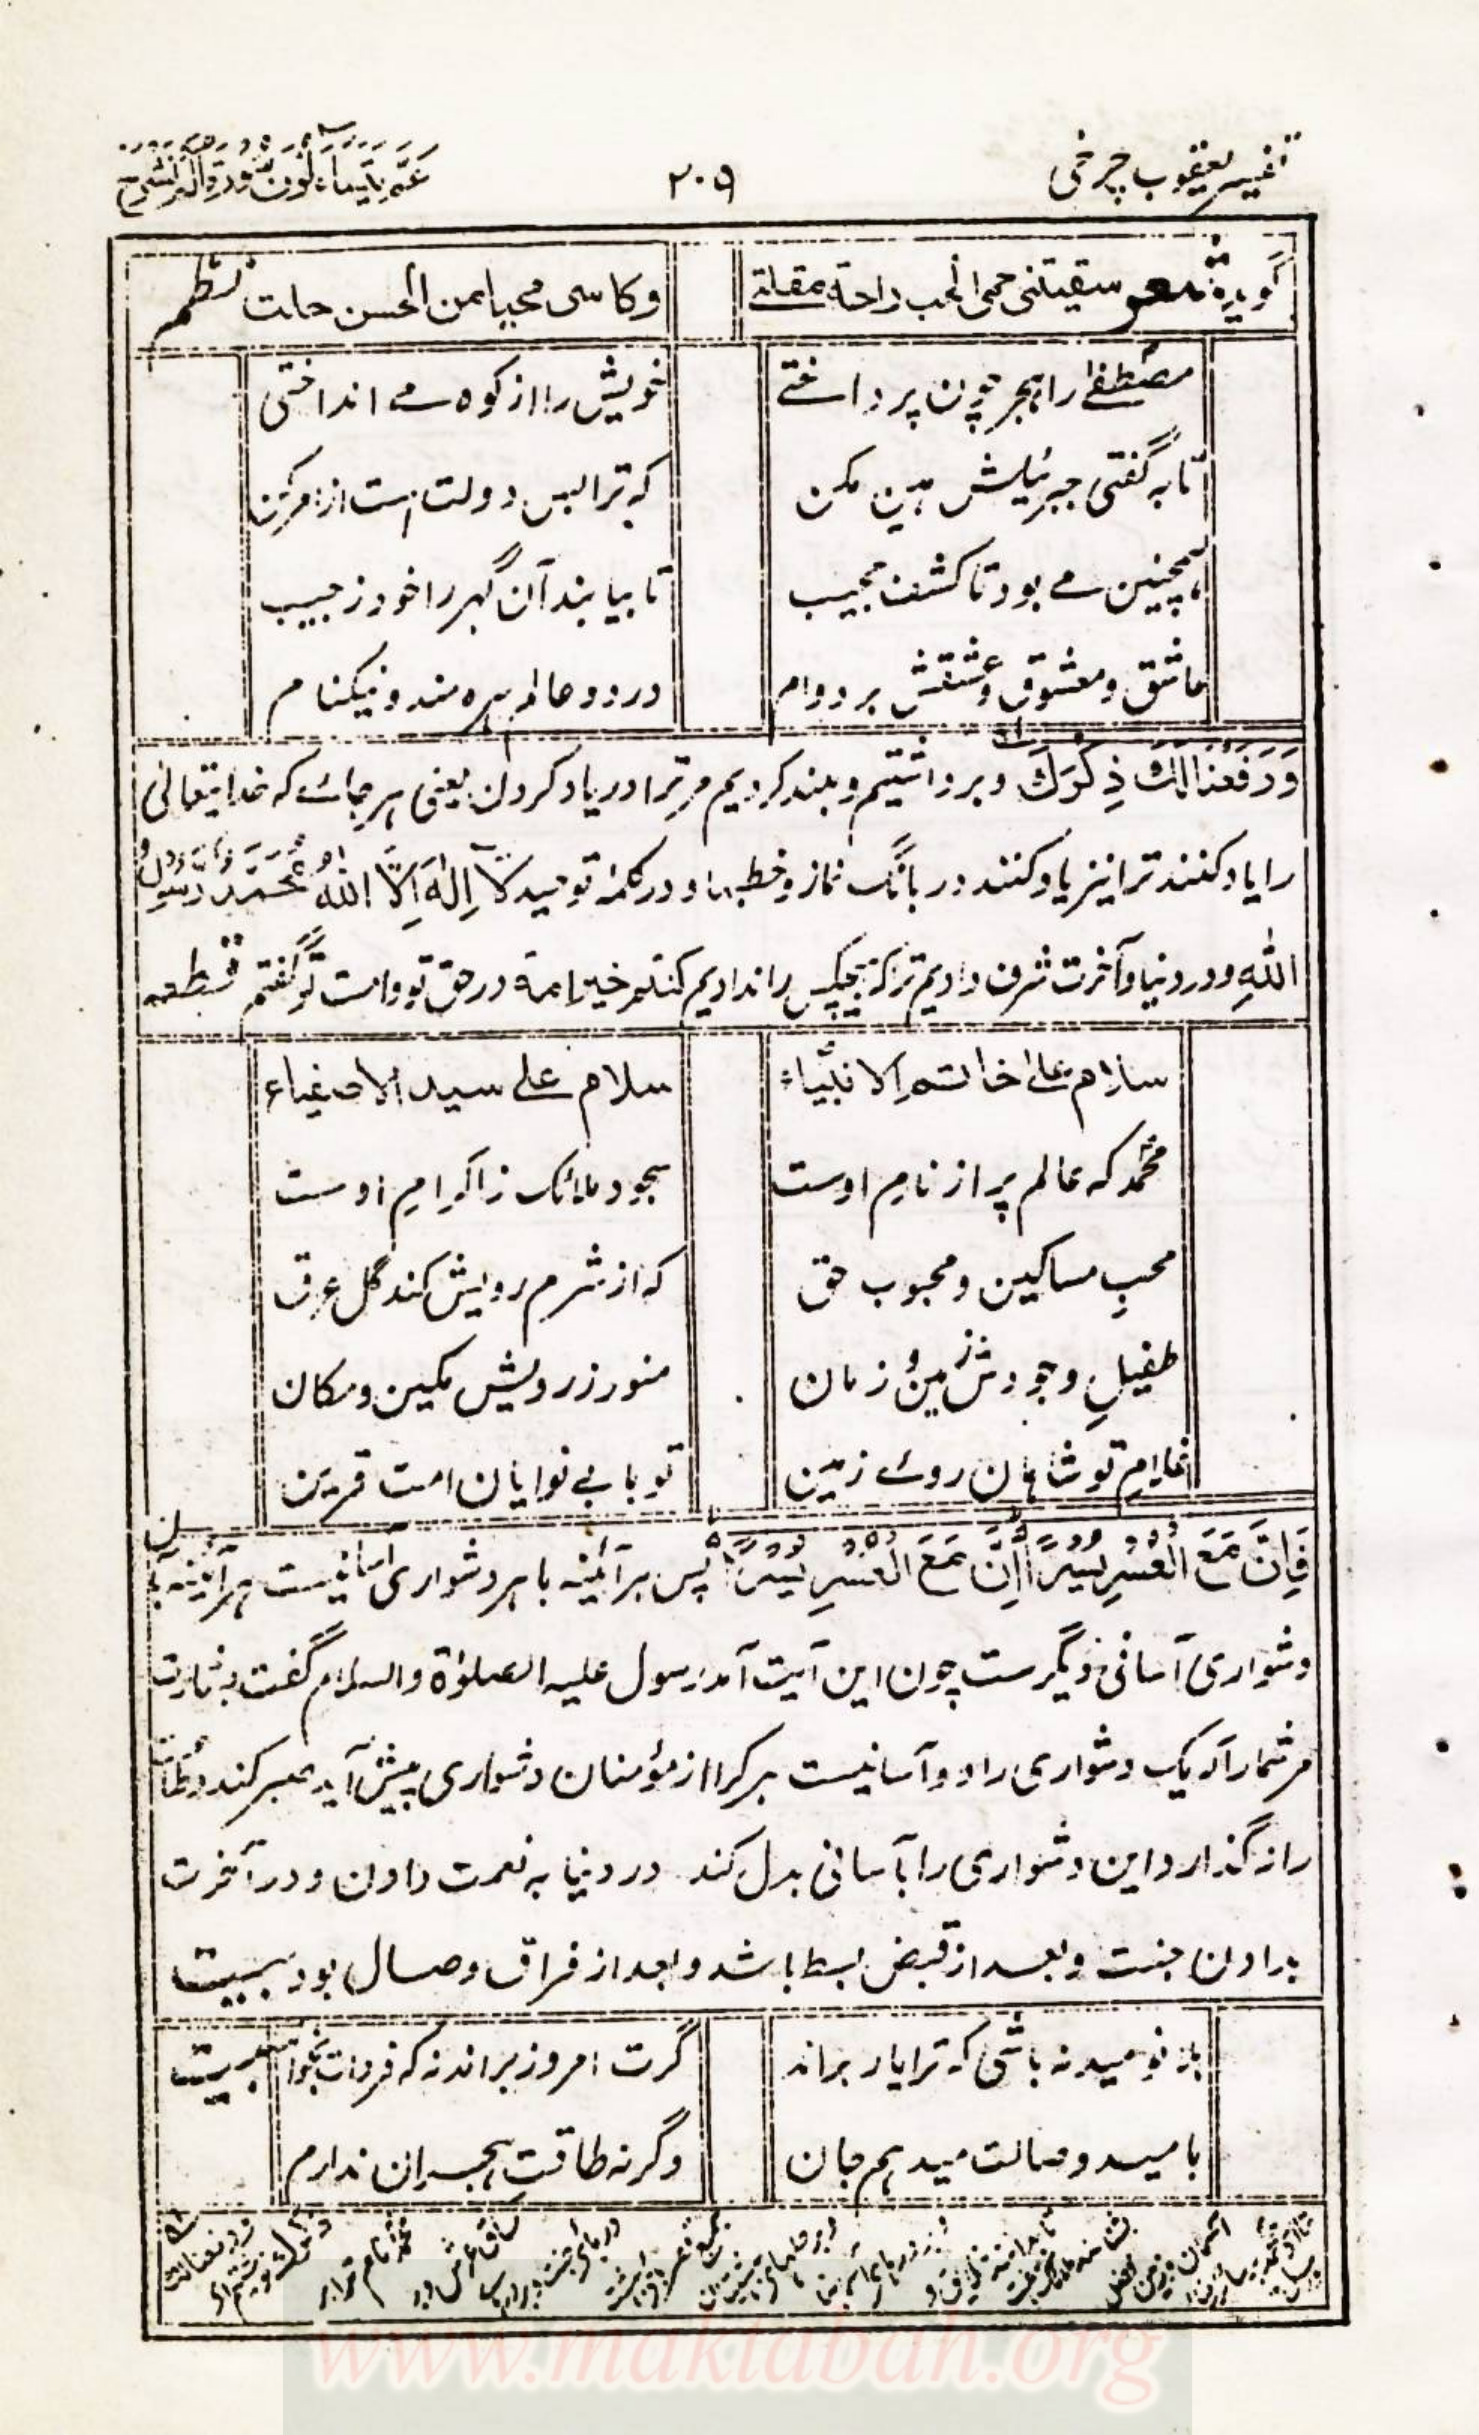 تفسیر یعقوب چرخی
۲۰۹
عم یتساءلون سورة الم نشرح
گوید شعر سقیتنی حمی الحب راحة مقلتے
وکاسی محیا من عن الحسن جلت نظم
مصطفےٰ را ہجر چون پرداختے
خویش را از کوہ مے انداختی
تا بہ گفتی جبرئیلش ہین مکن
کہ ترا بس دولت است از امر کن
ہمچنین مے بود تا کشف حجیب
تا بیابند آن گہر را خود ز جیب
عاشق و معشوق و عشقش بر دوام
در دو عالم بہرہ مند و نیکنام
وَرَفَعْنَا لَكَ ذِكْرَكَ و برداشتیم و بلند کردیم مر ترا در یاد کردن یعنی ہر جائے کہ خدایتعالیٰ
را یاد کنند ترا نیز یاد کنند در بانگ نماز و خطبہا و در کلمۂ توحید لَآ اِلٰهَ اِلَّا اللّٰهُ مُحَمَّدٌ رَّسُوْلُ
اللّٰهِ و در دنیا و آخرت شرف دادیم ترا کہ ہیچکس را ندادیم کنتم خیر امة در حق تو و امت تو گفتم قطعہ
سلام علیٰ خاتم الانبیاء
سلام علے سید الاصفیاء
محمد کہ عالم پر از نام اوست
سجود ملائک ز اکرام اوست
محبِ مساکین و محبوب حق
کہ از شرم رویش کند گل عرق
طفیلِ وجودش زمین و زمان
منور ز رویش مکین و مکان
غلامِ تو شاہان روے زمین
تو با بے نوایان امت قرین
فَاِنَّ مَعَ الْعُسْرِ يُسْرًا اِنَّ مَعَ الْعُسْرِ يُسْرًا پس ہر آئینہ با ہر دشواری آسانیست ہر آئینہ با آن
دشواری آسانی دیگرست چون این آیت آمد رسول علیہ الصلوٰة والسلام گفت بشارت
مر شما را کہ یک دشواری را دو آسانیست ہر کرا از مؤمنان دشواری پیش آید صبر کند و طاعات
را نگذارد این دشواری را بآسانی بدل کند در دنیا بہ نعمت دادن و در آخرت
بدادن جنت و بعد از قبض بسط باشد و بعد از فراق وصال بود بیت
ہان نومید نہ باشی کہ ترا یار براند
گرت امروز براند نہ کہ فردات بخواند بیت
بامید وصالت میدہم جان
وگرنہ طاقت ہجران ندارم
www.maktabah.org